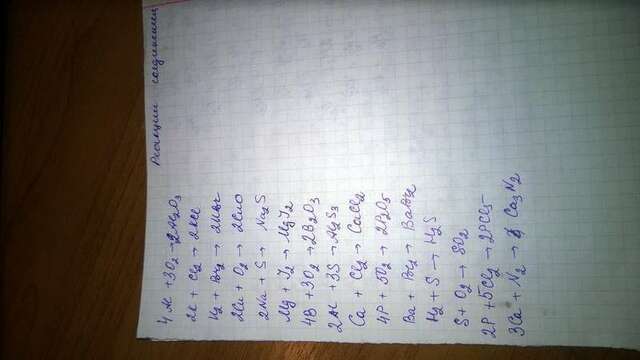 Реакции соединения
4Al + 3O2 → 2Al2O3
2K + Cl2 → 2KCl
H2 + Br2 → 2HBr
2Cu + O2 → 2CuO
2Na + S → Na2S
Mg + I2 → MgI2
4B + 3O2 → 2B2O3
2Al + 3S → Al2S3
Ca + Cl2 → CaCl2
4P + 5O2 → 2P2O5
Ba + Br2 → BaBr2
H2 + S → H2S
S + O2 → SO2
2P + 5Cl2 → 2PCl5
3Ca + N2 → Ca3N2